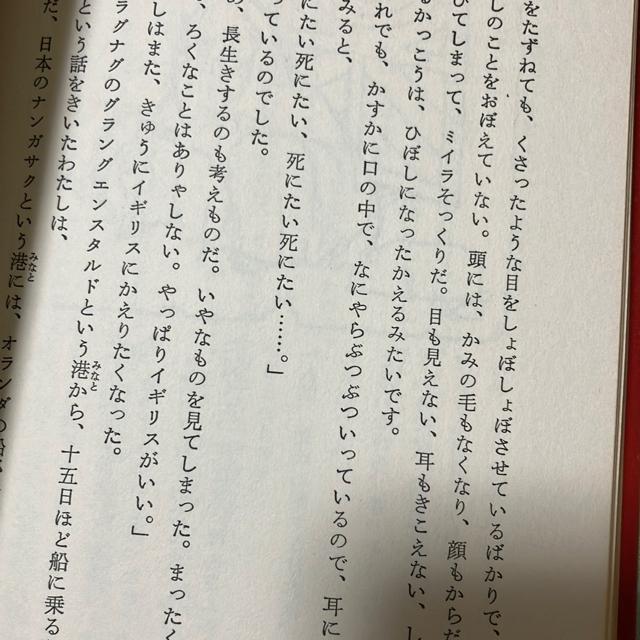 をたずねても、くさったような目をしょぼしょぼさせているばかりで、
しのことをおぼえていない。頭には、かみの毛もなくなり、顔もからだ
びてしまって、ミイラそっくりだ。目も見えない、耳もきこえない、し
るかっこうは、ひぼしになったかえるみたいです。
れでも、かすかに口の中で、なにやらぶつぶついっているので、耳に
みると、
にたい死にたい、死にたい死にたい……。」
っているのでした。
、長生きするのも考えものだ。いやなものを見てしまった。まったく
、ろくなことはありゃしない。やっぱりイギリスがいい。」
しはまた、きゅうにイギリスにかえりたくなった。
ラグナグのグラングエンスタルドという港みなとから、十五日ほど船に乗る
という話をきいたわたしは、
だ、日本のナンガサクという港みなとには、オランダの船